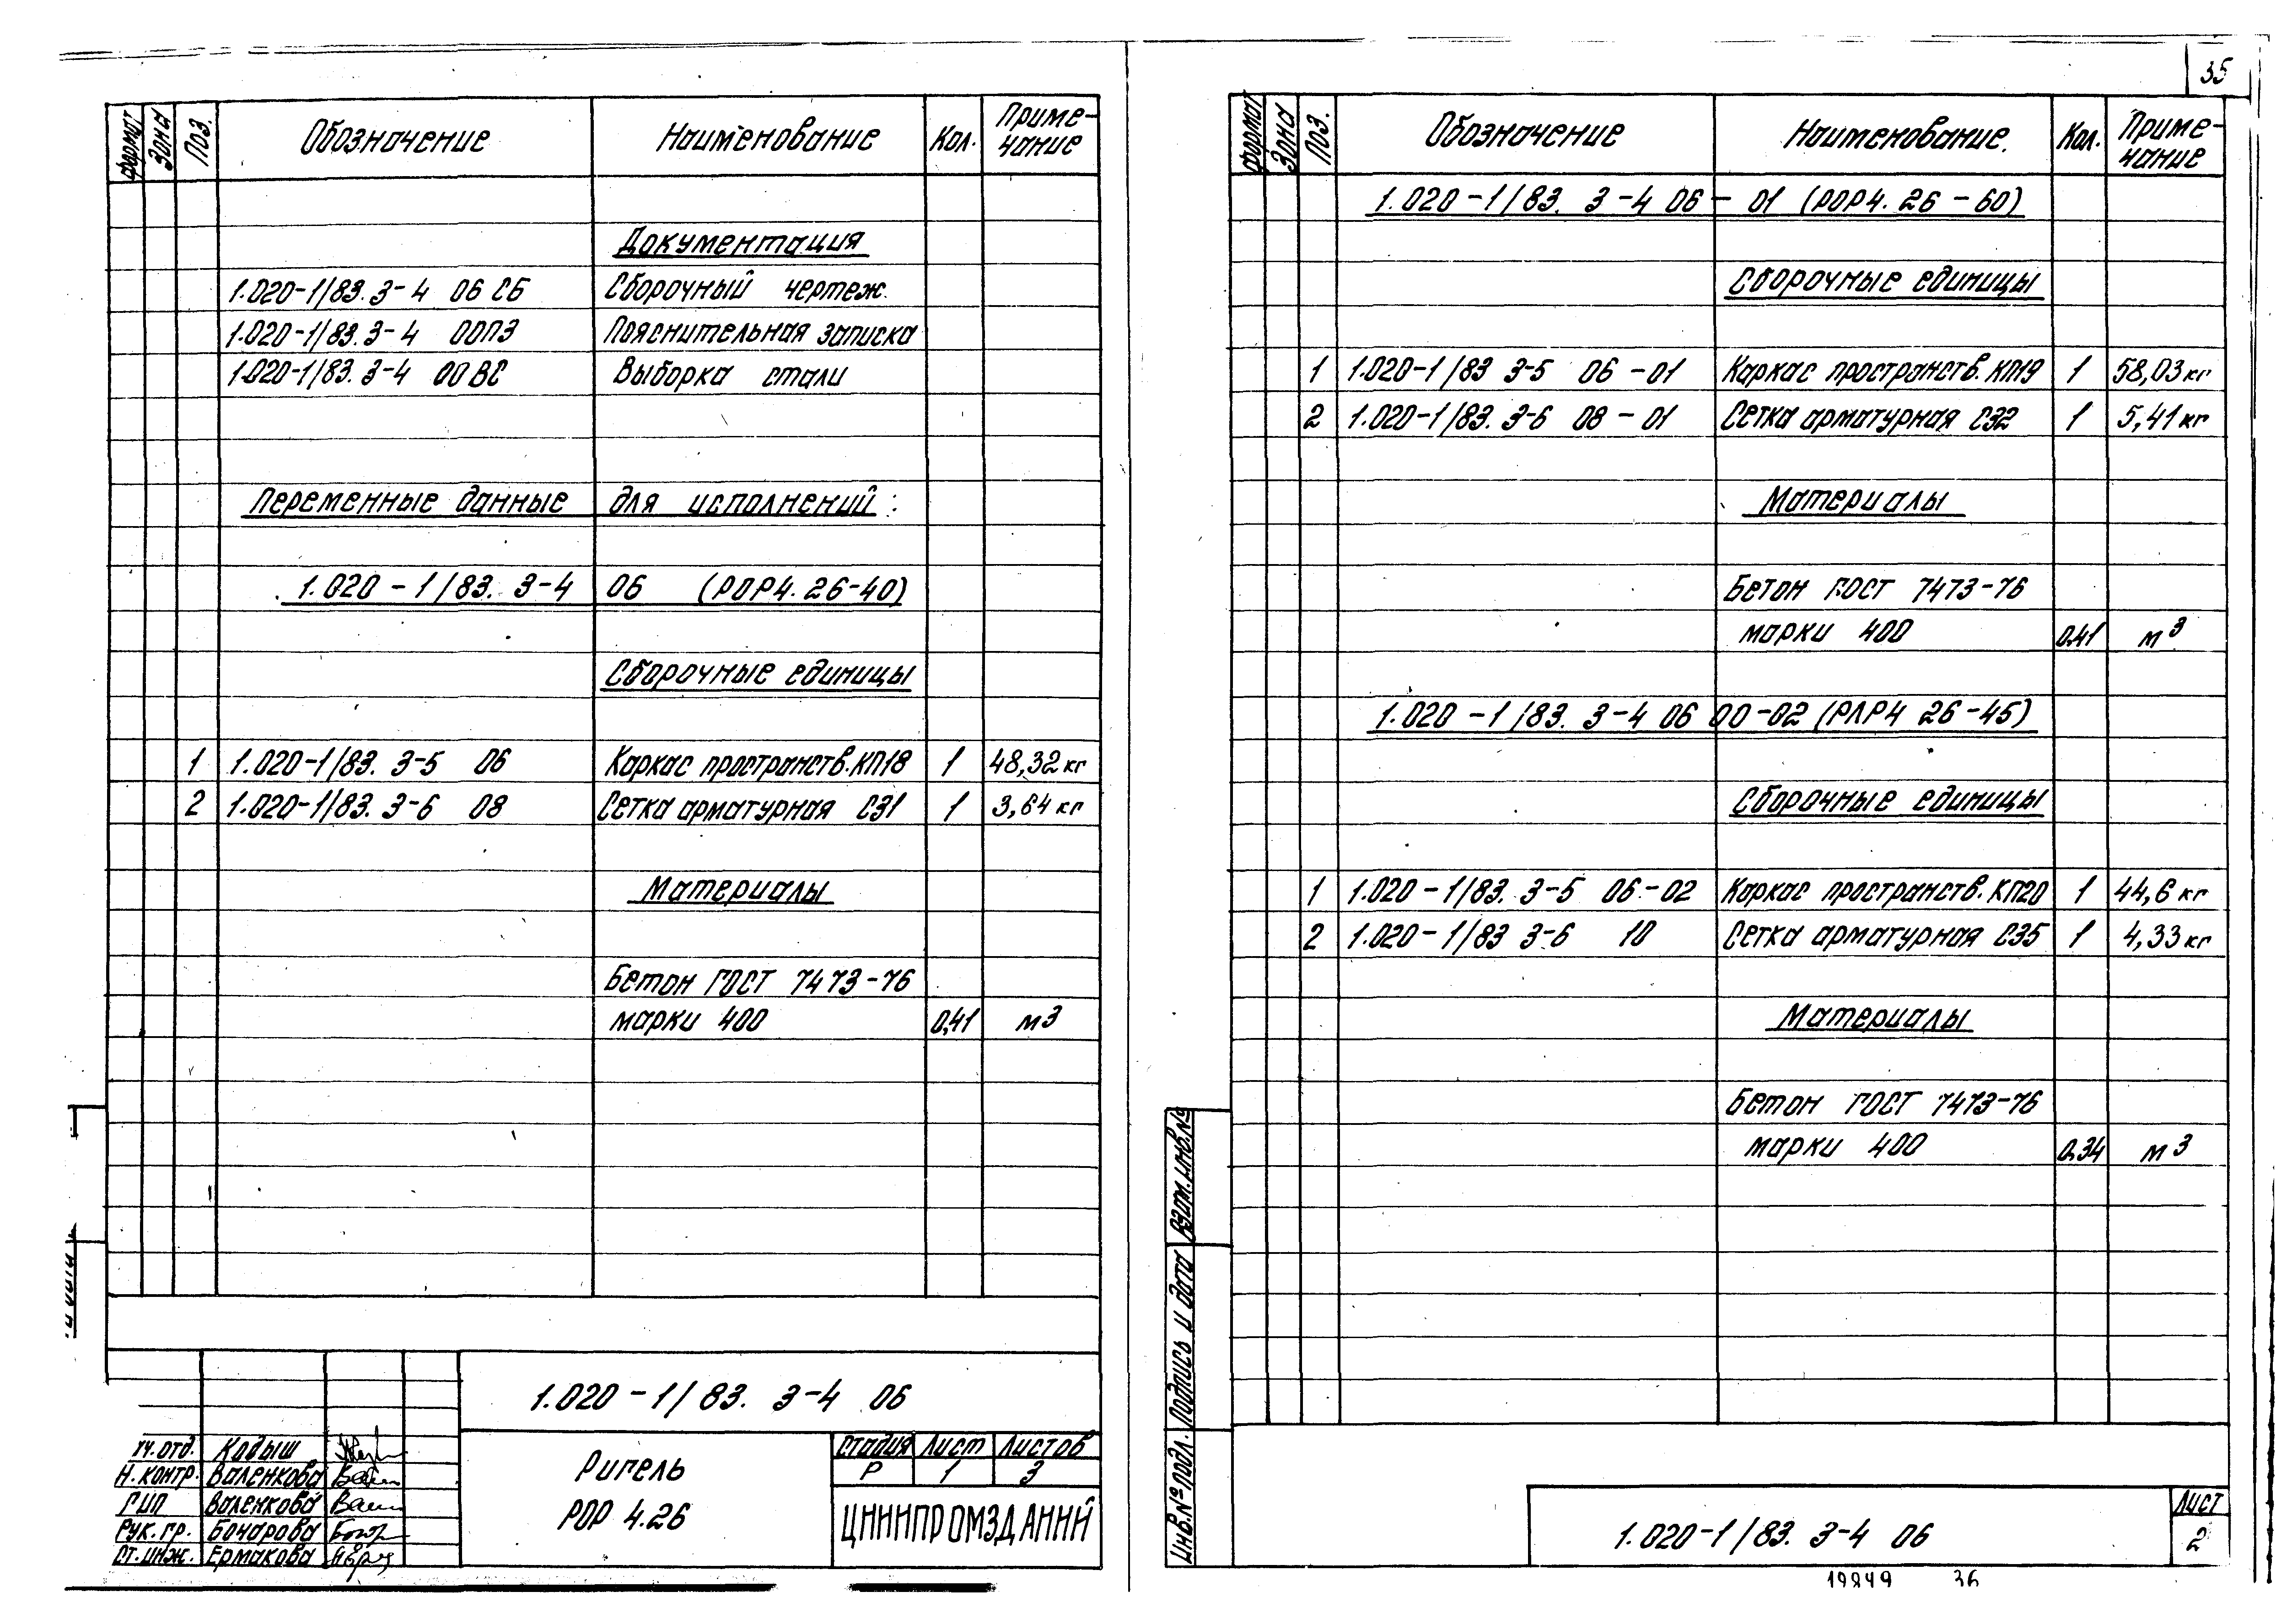 формат Зона Поз. Обозначение Наименование Кол. Приме-
чание
Документация
1.020-1/83. 3-4 06 СБ Сборочный чертеж.
1.020-1/83. 3-4 00ПЗ Пояснительная записка
1.020-1/83. 3-4 00 ВС Выборка стали
Переменные данные для исполнений:
1.020-1/83. 3-4 06 (РОР4.26-40)
Сборочные единицы
1 1.020-1/83. 3-5 06 Каркас пространств.КП18 1 48,32 кг
2 1.020-1/83. 3-6 08 Сетка арматурная С31 1 3,64 кг
Материалы
Бетон ГОСТ 7473-76
марки 400 0,41 м3
1.020-1/83. 3-4 06
Ригель
РОР 4.26
Стадия Лист Листов
Р 1 3
ЦНИИПРОМЗДАНИЙ
Гл. отд. Кодыш
Н. контр. Валенкова
ГИП Валенкова
Рук. гр. Бочарова
Ст. инж. Ермакова
35
формат Зона Поз. Обозначение Наименование. Кол. Приме-
чание
1.020-1/83. 3-4 06-01 (РОР4.26-60)
Сборочные единицы
1 1.020-1/83 3-5 06-01 Каркас пространств.КП19 1 58,03 кг
2 1.020-1/83. 3-6 08-01 Сетка арматурная С32 1 5,41 кг
Материалы
Бетон ГОСТ 7473-76
марки 400 0.41 м3
1.020-1/83. 3-4 06 00-02 (РЛР4 26-45)
Сборочные единицы
1 1.020-1/83. 3-5 06-02 Каркас пространств.КП20 1 44,6 кг
2 1.020-1/83 3-6 10 Сетка арматурная С35 1 4,33 кг
Материалы
Бетон ГОСТ 7473-76
марки 400 0.34 м3
Инв.№ подл. Подпись и дата Взам. инв.№
1.020-1/83. 3-4 06
Лист
2
19849 36